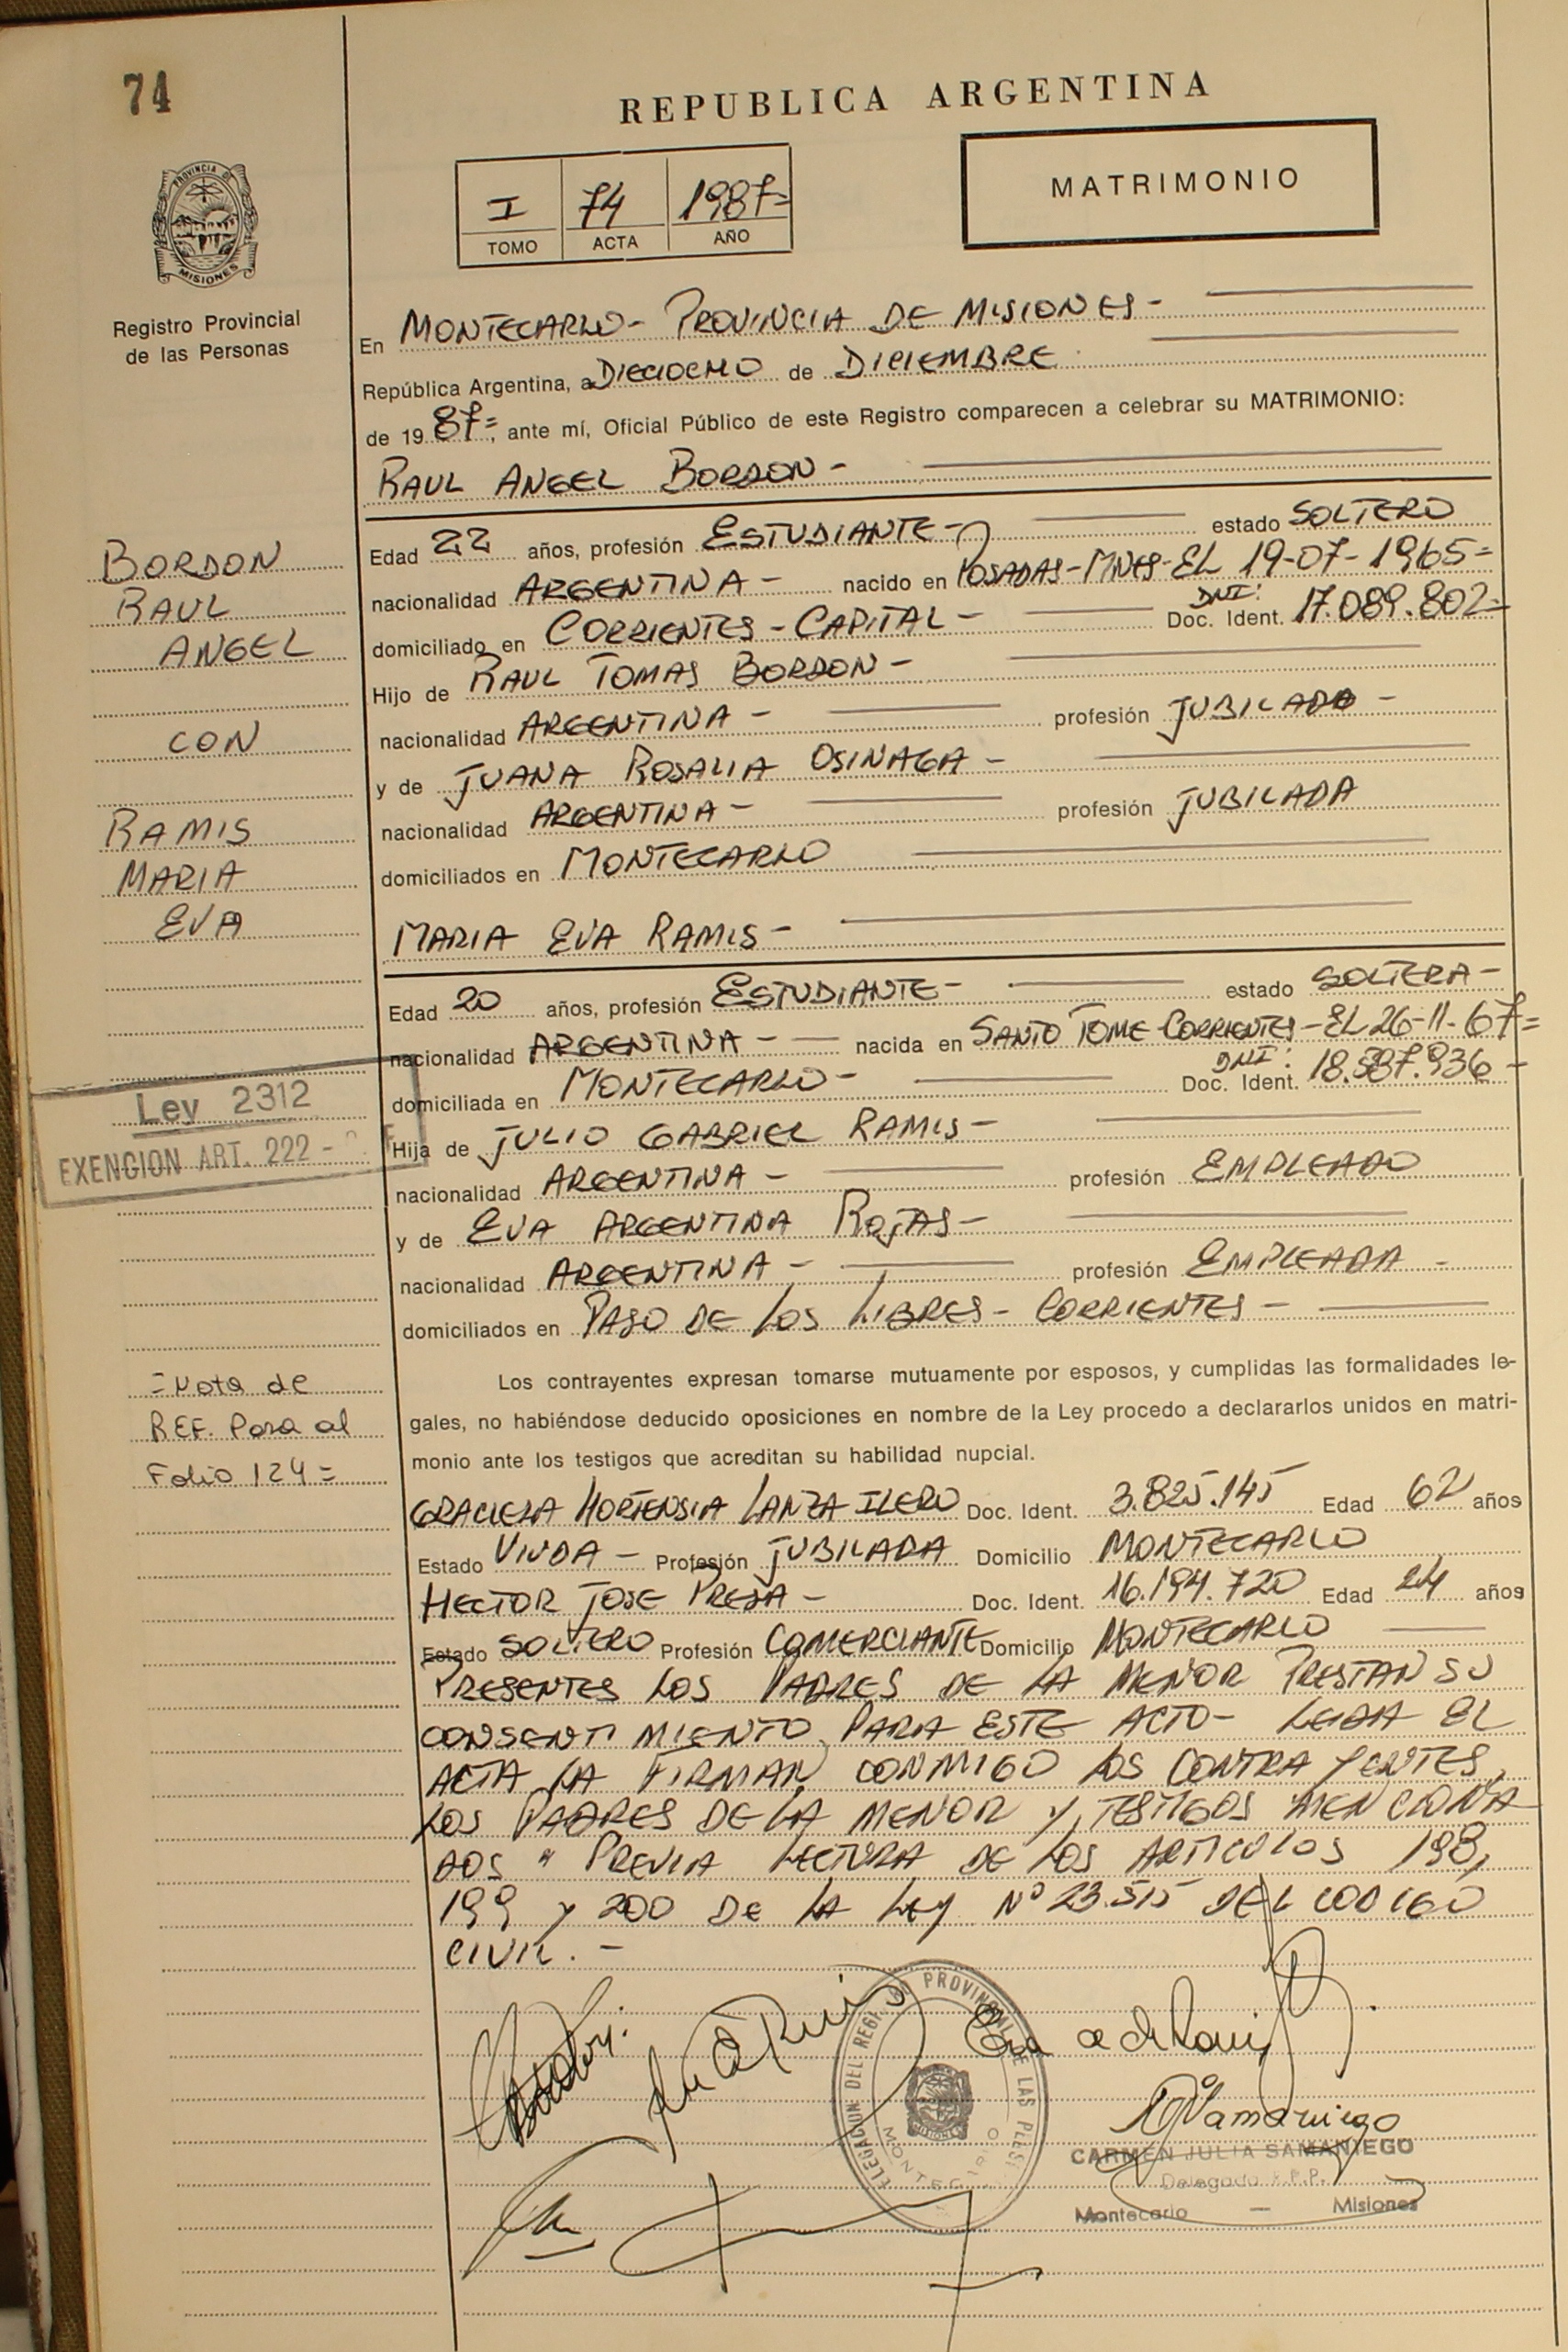 74
REPUBLICA ARGENTINA
PROVINCIA DE
MISIONES
Registro Provincial
de las Personas
I 74 1987=
TOMO ACTA AÑO
MATRIMONIO
En MONTECARLO- PROVINCIA DE MISIONES-
República Argentina, a DIECIOCHO de DICIEMBRE
de 19 87=, ante mí, Oficial Público de este Registro comparecen a celebrar su MATRIMONIO:
RAUL ANGEL BORDON-
Edad 22 años, profesión ESTUDIANTE- estado SOLTERO
nacionalidad ARGENTINA- nacido en POSADAS-MNES-EL 19-07-1965=
domiciliado en CORRIENTES-CAPITAL- DNI: Doc. Ident. 17.089.802=
Hijo de RAUL TOMAS BORDON-
nacionalidad ARGENTINA- profesión JUBILADO-
y de JUANA ROSALIA OSINAGA-
nacionalidad ARGENTINA- profesión JUBILADA
domiciliados en MONTECARLO
BORDON
RAUL
ANGEL
CON
RAMIS
MARIA
EVA
MARIA EVA RAMIS-
Edad 20 años, profesión ESTUDIANTE- estado SOLTERA-
nacionalidad ARGENTINA- nacida en SANTO TOME-CORRIENTES-EL 26-11-67=
domiciliada en MONTECARLO- DNI: Doc. Ident.
Hija de JULIO GABRIEL RAMIS-
nacionalidad ARGENTINA- profesión EMPLEADO
y de EVA ARGENTINA ROJAS-
nacionalidad ARGENTINA- profesión EMPLEADA-
domiciliados en PASO DE LOS LIBRES- CORRIENTES-
Ley 2312
EXENCION ART. 222 -
=Nota de
REF. Pasa al
Folio 124=
Los contrayentes expresan tomarse mutuamente por esposos, y cumplidas las formalidades le-
gales, no habiéndose deducido oposiciones en nombre de la Ley procedo a declararlos unidos en matri-
monio ante los testigos que acreditan su habilidad nupcial.
GRACIELA HORTENSIA LANZA Doc. Ident. 3.825.145 Edad 62 años
Estado VIUDA- Profesión JUBILADA Domicilio MONTECARLO
HECTOR JOSE Doc. Ident. 16.194.720 Edad 24 años
Estado SOLTERO Profesión COMERCIANTE Domicilio MONTECARLO
PRESENTES LOS PADRES DE LA MENOR PRESTAN SU
CONSENTIMIENTO PARA ESTE ACTO- LEIDA EL
ACTA LA FIRMAN CONMIGO LOS CONTRAYENTES,
LOS PADRES DE LA MENOR Y, TESTIGOS MENCIONA
DOS " PREVIA LECTURA DE LOS ARTICULOS 198,
199 y 200 DE LA LEY Nº 23.515 DEL CODIGO
CIVIL.-
CARMEN JULIA SAMANIEGO
Delegada R.P.P.
Montecarlo — Misiones